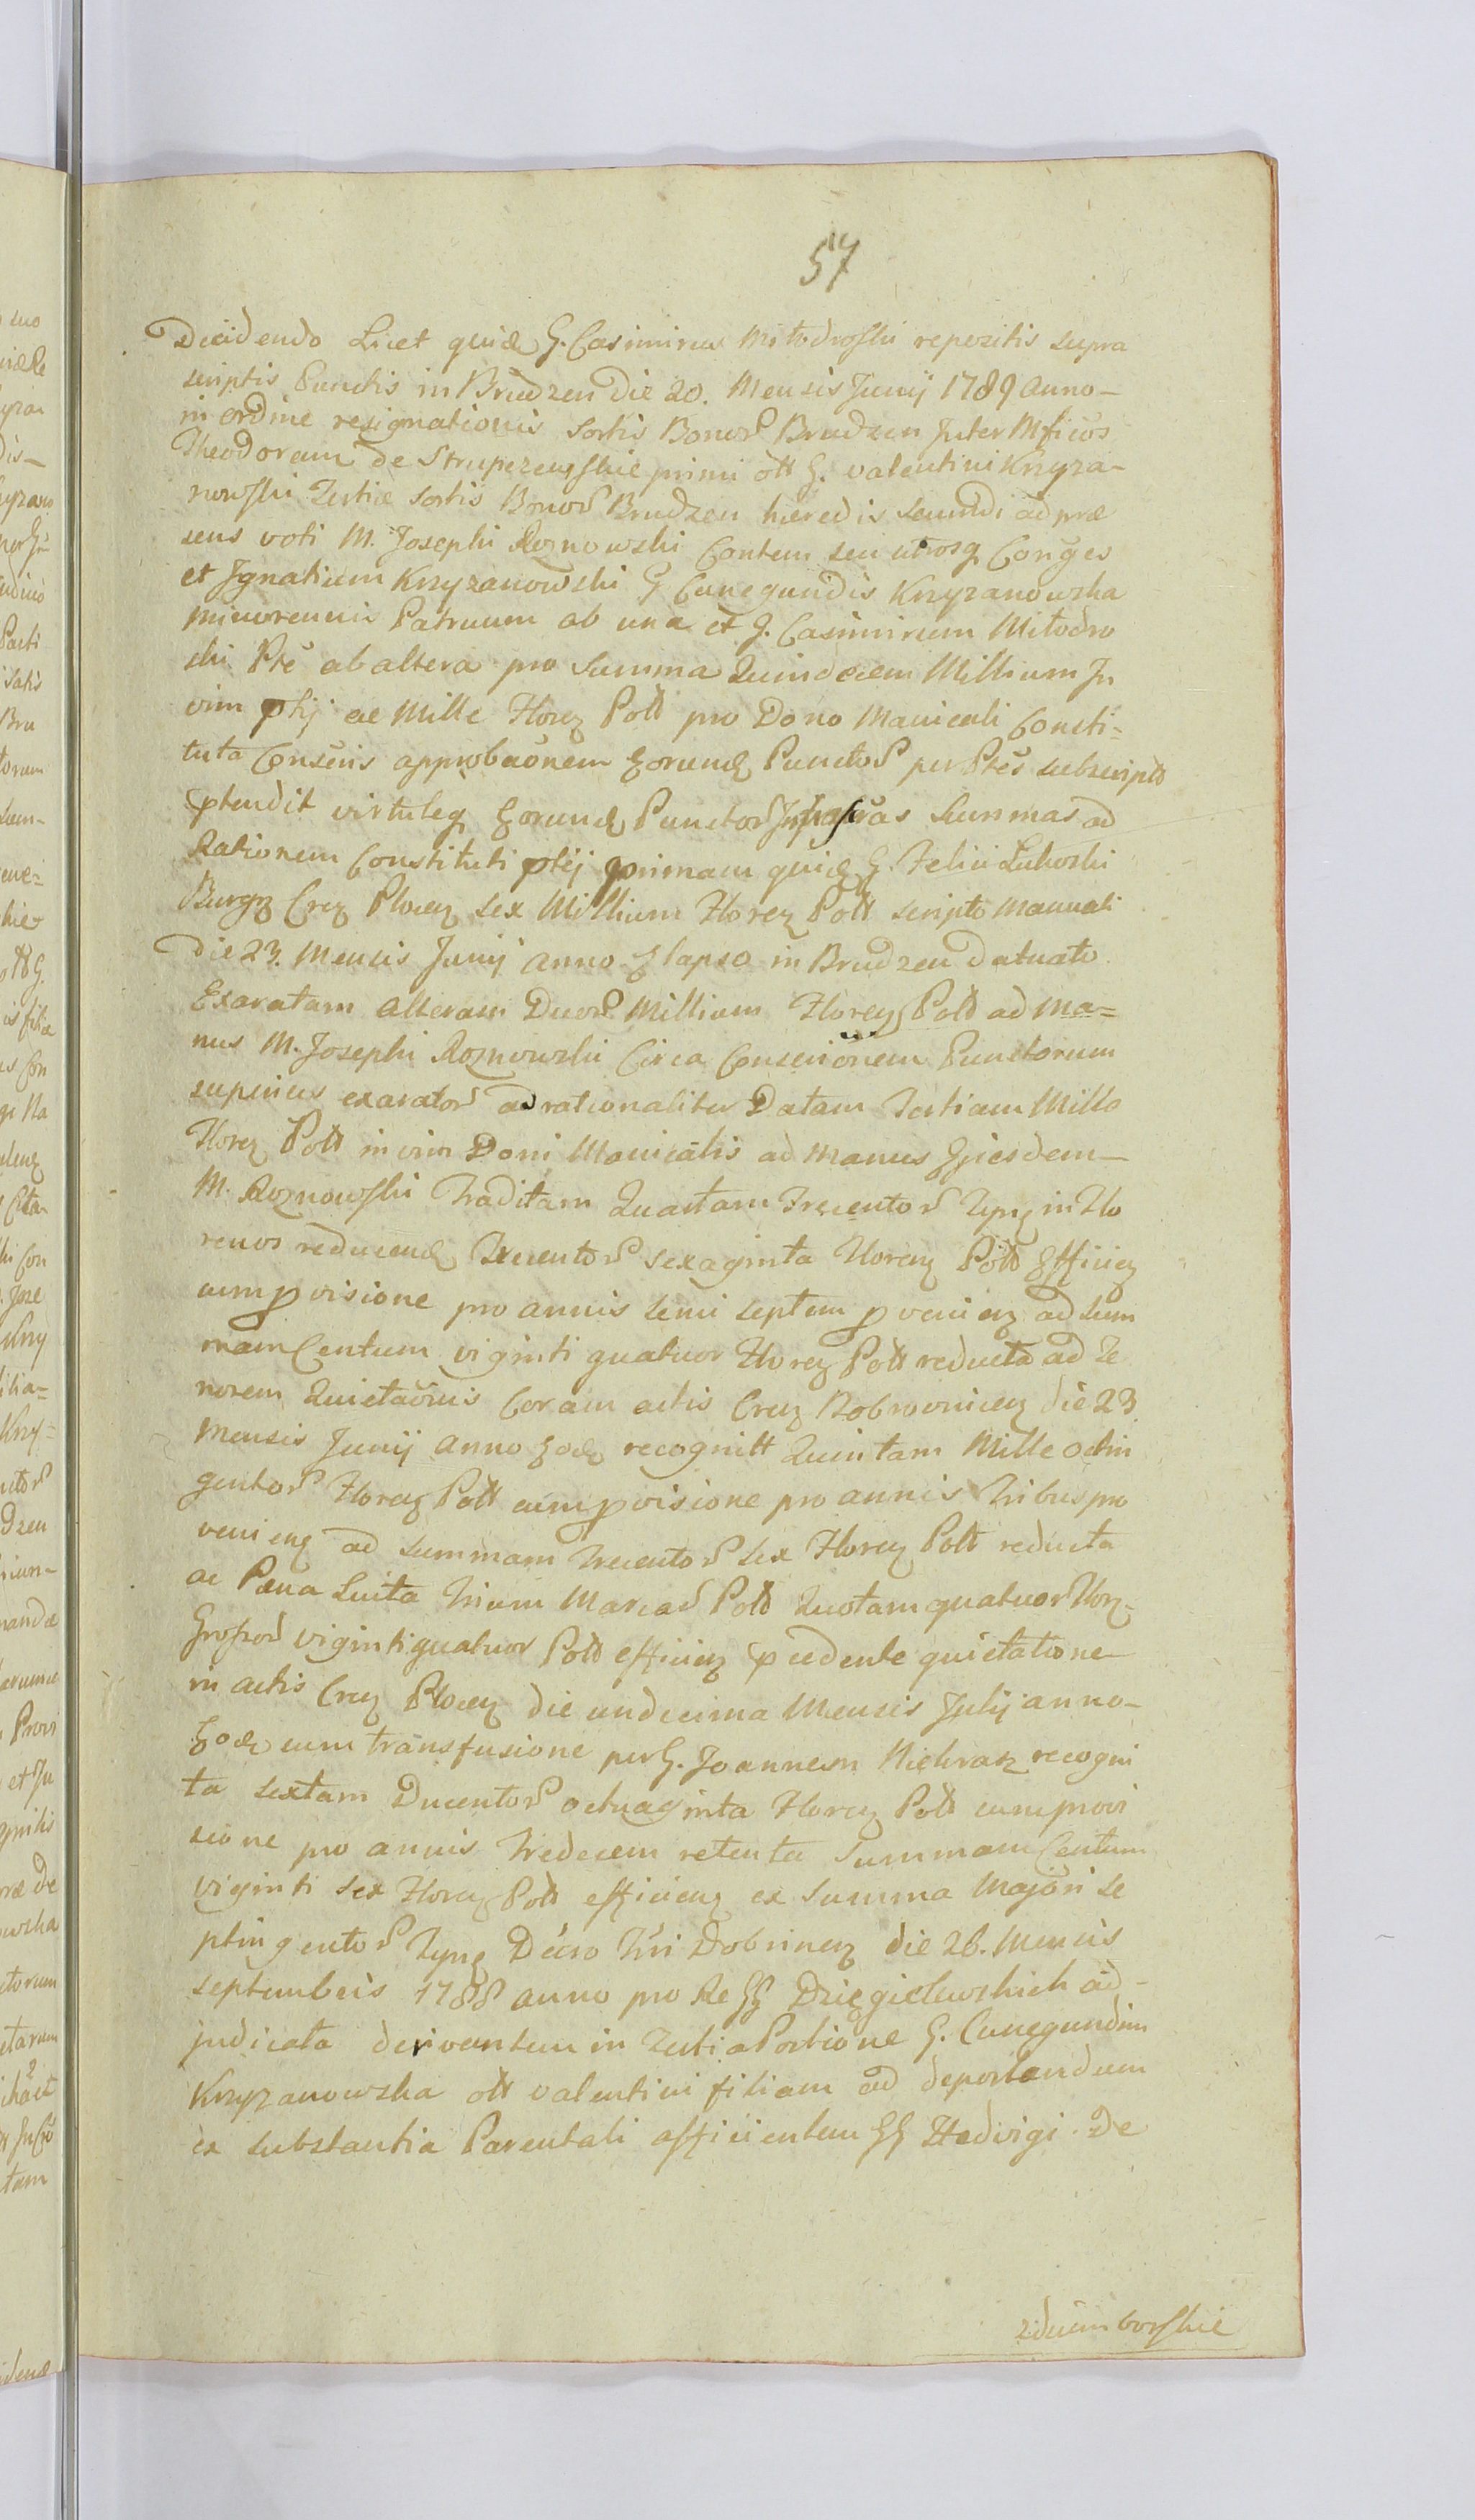 57
Decidendo Licet quid G. Casimirus Miłodroski repositis supra
scriptis Punctis in Brudzen Die 20. Mensis Junij 1789 Anno-
in ordine resignationis Sortis Bonor Brudzen Inter Mficos
Theodoram de Strupczewskie primi ott G. Valentini Krzyza-
nowski Tertiæ Sortis Bonor Brudzen hæredis secundi ad præ
sens voti M. Josephi Roznowski Contem seu utrosq Conges
et Ignatium Krzyzanowski G Cunegundis Krzyzanowska
minorennis Patruum ab una et G. Casimirum Miłodro
ski Pte ab altera pro Summa Quindecem Millium In
vim ptij ac Mille Floreg Poll pro Dono Manicali Consti-
tuta Conseris approbaonem Eorund Punctor per Ptes subscript
ptendit virtuteq Eorund Punctor Summas ad
Rationem Constituti ptij primam quid G. Felici Lukoski
Burgo Creg Ploceg Sex Millium Floreg Poll scripto Manuali
Die 23. Mensis Junij Anno Elapso in Brudzen Datuato
Exaratam alteram Duor Millium Floreg Poll ad Ma=
nus M. Josephi Roznowski Circa Conserionem Punctorum
superius exarator ad rationaliter Datam Tertiam Mille
Floreg Poll in vim Doni Manicalis ad Manus Ejusdem-
M. Roznowski Traditam Quartam Trecentor Tynf in Flo
renos reducend Trecentor Sexaginta Floreg Poll Efficieg
cum pvisione pro annis semi septem pvenieg ad Sum
mam Centum viginti quatuor Floreg Poll reducta ad Te
norem Quietaonis Coram actis Creg Bobrovniceg die 23
Mensis Junij Anno Eod recognitt Quintam Mille octin
gentor Floreg Poll cum pvisione pro annis Tribus pro
venieg ad Summam Trecentor Sex Floreg Poll reducta
ac Pæna Luita Trium Marcar Poll Quotam quatuor Flor-
Grossor viginti quatuor Poll efficieg pcedente quietatione
in actis Creg Ploceg die undecima Mensis Julij anno-
Eod cum transfusione per G. Joannem recogni
ta Sextam Ducentor octuaginta Floreg Poll cum provi
sione pro annis Tredecem retenta Summam Centum
viginti Sex Floreg Poll efficieg ex Summa Majori Se
ptingentor Tynf Decro Tri Dobrineg die 26. Mensis
Septembris 1788 anno pro Re GG Dzięgielewskich ad-
judicata derivantem in Tertia Portione G. Cunegundim
Krzyzanowska ott Valentini filiam ad deportandum
ex substantia Parentali afficientem GG Hedvigi De